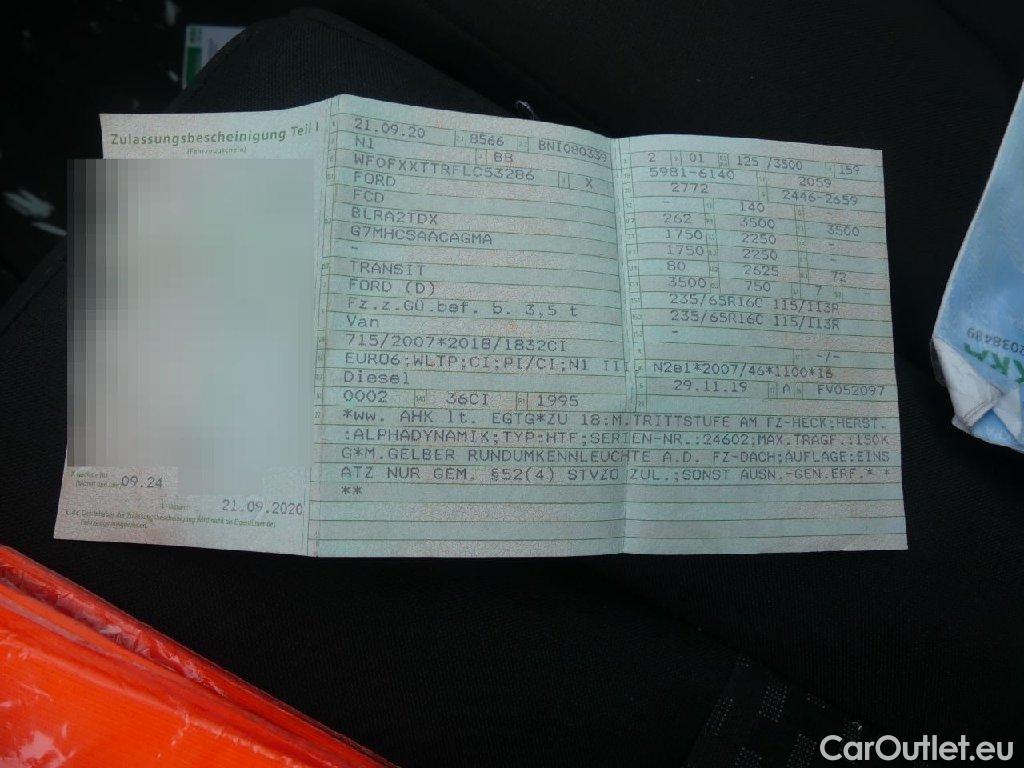 Zulassungsbescheinigung Teil I
(Fahrzeugschein)
09.24
21.09.2020
21.09.20 8566 BNI080339
N1 BB
WF0FXXTTRFLC53286 X
FORD
FCD
BLRA2TDX
G7MHCSAACAGMA
-
TRANSIT
FORD (D)
Fz.z.Gü.bef. b. 3,5 t
Van
715/2007*2018/1832CI
EURO6;WLTP;CI;PI/CI;N1 III
Diesel
0002 36CI 1995
2 01 125 /3500 159
5981-6140 2059
2772 2446-2659
- 140 -
262 3500 3500
1750 2250 -
1750 2250 -
80 2625 72
3500 750 7 -
235/65R16C 115/113R
235/65R16C 115/113R
-
- -/-
N2e1*2007/46*1100*18
29.11.19 A FV052097
*ww. AHK lt. EGTG*ZU 18:M.TRITTSTUFE AM FZ-HECK;HERST.
:ALPHADYNAMIK;TYP:HTF;SERIEN-NR.:24602;MAX.TRAGF.:150K
G*M.GELBER RUNDUMKENNLEUCHTE A.D. FZ-DACH;AUFLAGE:EINS
ATZ NUR GEM. §52(4) STVZO ZUL.;SONST AUSN.-GEN.ERF.* *
**
2038489
CarOutlet.eu